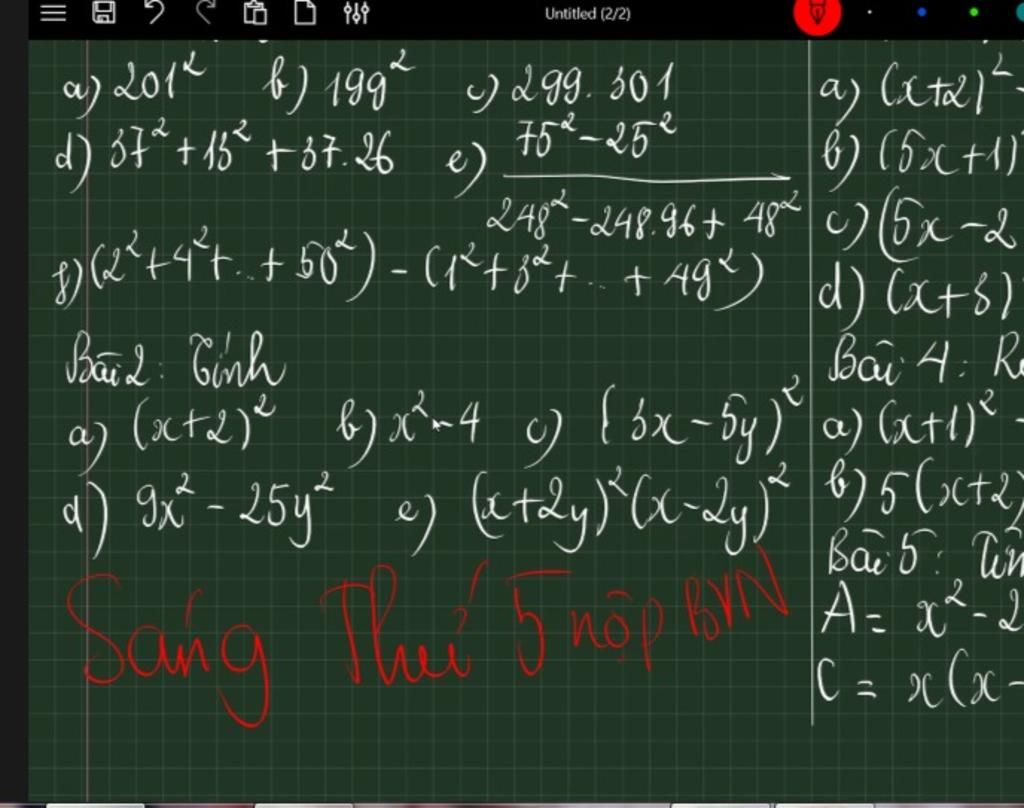 Untitled (2/2)
a) 201² b) 199² c) 299.301
d) 37² + 13² + 37.26 e) 75² - 25² / 248² - 248.96 + 48²
f) (2² + 4² + .. + 50²) - (1² + 3² + .. + 49²)
Bài 2: Tính
a) (x+2)² b) x² - 4 c) (3x - 5y)²
d) 9x² - 25y² e) (x+2y)²(x-2y)²
Sáng Thứ 5 nộp BVN
a) (x+2)² -
b) (5x+1)
c) (5x - 2
d) (x+3)
Bài 4: R
a) (x+1)² -
b) 5(x+2)
Bài 5: Tín
A = x² - 2
C = x(x -